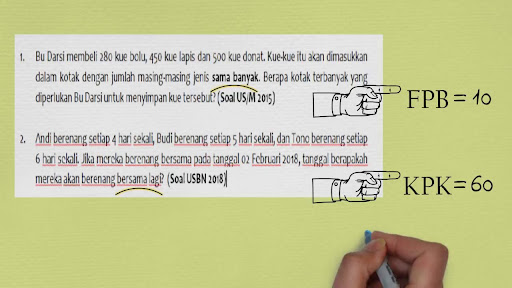 1. Bu Darsi membeli 280 kue bolu, 450 kue lapis dan 500 kue donat. Kue-kue itu akan dimasukkan
dalam kotak dengan jumlah masing-masing jenis sama banyak. Berapa kotak terbanyak yang
diperlukan Bu Darsi untuk menyimpan kue tersebut? (Soal US/M 2015)
FPB = 10
2. Andi berenang setiap 4 hari sekali, Budi berenang setiap 5 hari sekali, dan Tono berenang setiap
6 hari sekali. Jika mereka berenang bersama pada tanggal 02 Februari 2018, tanggal berapakah
mereka akan berenang bersama lagi? (Soal USBN 2018)
KPK = 60